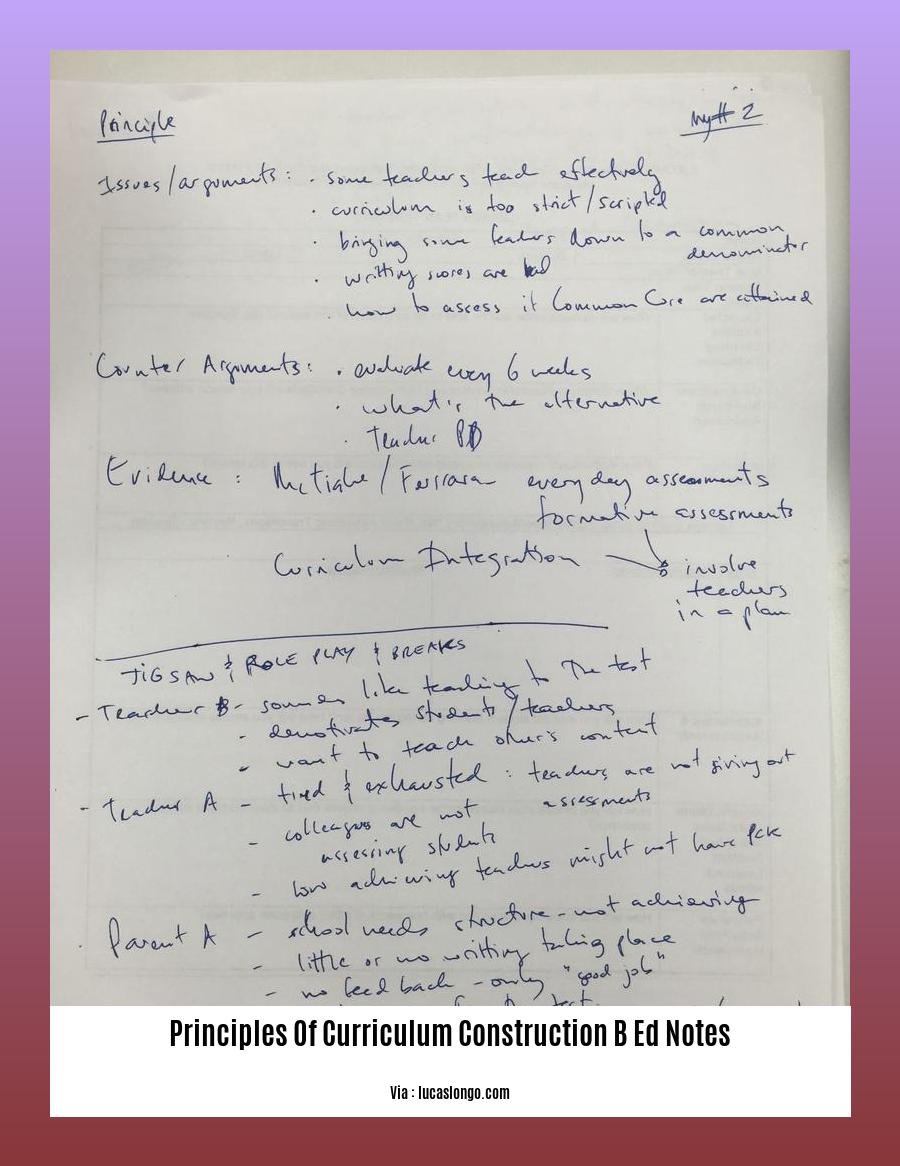 Principle
Issues/arguments: · some teachers teach effectively
· curriculum is too strict/scripted
· bringing some teachers down to a common
denominator
· writting scores are bad
· how to assess if Common Core are attained
Counter Arguments: · evaluate every 6 weeks
· what's the alternative
· teacher PD
Evidence : McTighe/Ferrara everyday assessments
formative assessments
Curriculum Integration
involve
teachers
in a plan
JIGSAW & ROLE PLAY & BREAKS
- Teacher B - sounds like teaching to the test
- demotivates students/teachers
- want to teach other's content
- Teacher A - tired & exhausted : teachers are not giving out
assessments
- colleagues are not
assessing students
- low achieving teachers might not have PCK
· Parent A - school needs structure - not achieving
- little or no writting taking place
- no feedback - only "good job"
Principles Of Curriculum Construction B Ed Notes
Via : lucaslongo.com